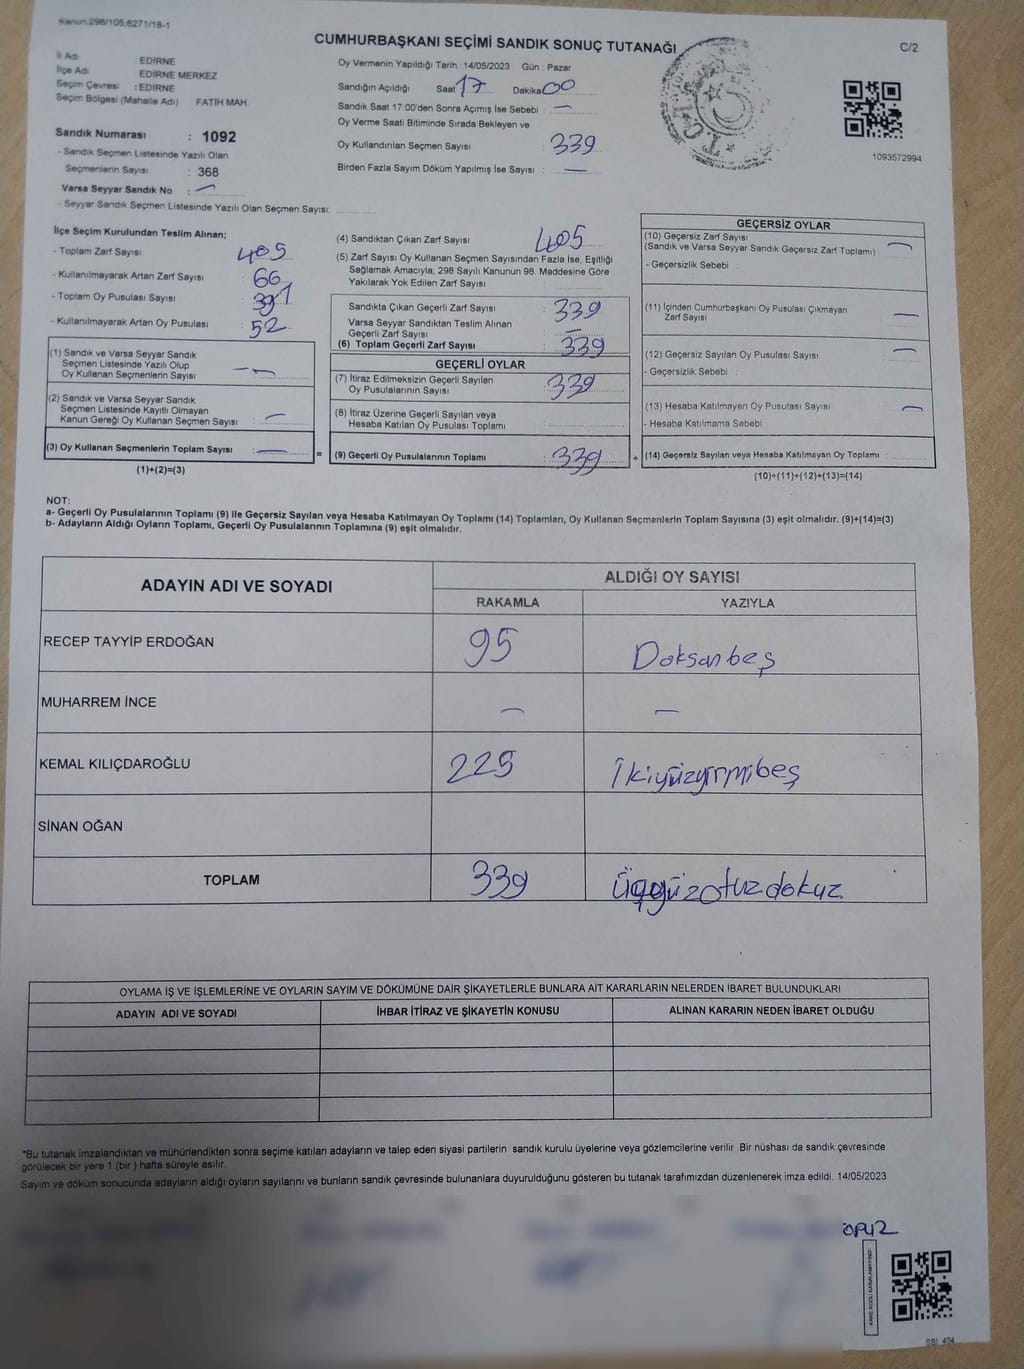 Kanun:298/105;6271/18-1
CUMHURBAŞKANI SEÇİMİ SANDIK SONUÇ TUTANAĞI
C/2
İl Adı : EDİRNE
İlçe Adı : EDİRNE MERKEZ
Seçim Çevresi : EDİRNE
Seçim Bölgesi (Mahalle Adı) FATİH MAH.
Sandık Numarası : 1092
- Sandık Seçmen Listesinde Yazılı Olan
Seçmenlerin Sayısı : 368
Varsa Seyyar Sandık No : —
- Seyyar Sandık Seçmen Listesinde Yazılı Olan Seçmen Sayısı:
Oy Vermenin Yapıldığı Tarih :14/05/2023 Gün : Pazar
Sandığın Açıldığı Saat 17 Dakika 00
Sandık Saat 17:00'den Sonra Açımış İse Sebebi : —
Oy Verme Saati Bitiminde Sırada Bekleyen ve
Oy Kullandırılan Seçmen Sayısı : 339
Birden Fazla Sayım Döküm Yapılmış İse Sayısı : —
T.C.
1093572994
İlçe Seçim Kurulundan Teslim Alınan;
- Toplam Zarf Sayısı : 405
- Kullanılmayarak Artan Zarf Sayısı : 66
- Toplam Oy Pusulası Sayısı : 391
- Kullanılmayarak Artan Oy Pusulası : 52
(1) Sandık ve Varsa Seyyar Sandık
Seçmen Listesinde Yazılı Olup
Oy Kullanan Seçmenlerin Sayısı : —
(2) Sandık ve Varsa Seyyar Sandık
Seçmen Listesinde Kayıtlı Olmayan
Kanun Gereği Oy Kullanan Seçmen Sayısı : —
(3) Oy Kullanan Seçmenlerin Toplam Sayısı : — =
(1)+(2)=(3)
(4) Sandıktan Çıkan Zarf Sayısı : 405
(5) Zarf Sayısı Oy Kullanan Seçmen Sayısından Fazla İse, Eşitliği
Sağlamak Amacıyla, 298 Sayılı Kanunun 98. Maddesine Göre
Yakılarak Yok Edilen Zarf Sayısı :
Sandıkta Çıkan Geçerli Zarf Sayısı : 339
Varsa Seyyar Sandıktan Teslim Alınan
Geçerli Zarf Sayısı : —
(6) Toplam Geçerli Zarf Sayısı : 339
GEÇERLİ OYLAR
(7) İtiraz Edilmeksizin Geçerli Sayılan
Oy Pusulalarının Sayısı : 339
(8) İtiraz Üzerine Geçerli Sayılan veya
Hesaba Katılan Oy Pusulası Toplamı :
(9) Geçerli Oy Pusulalarının Toplamı : 339 +
GEÇERSİZ OYLAR
(10) Geçersiz Zarf Sayısı
(Sandık ve Varsa Seyyar Sandık Geçersiz Zarf Toplamı) : —
- Geçersizlik Sebebi :
(11) İçinden Cumhurbaşkanı Oy Pusulası Çıkmayan
Zarf Sayısı : —
(12) Geçersiz Sayılan Oy Pusulası Sayısı : —
- Geçersizlik Sebebi :
(13) Hesaba Katılmayan Oy Pusulası Sayısı : —
- Hesaba Katılmama Sebebi
(14) Geçersiz Sayılan veya Hesaba Katılmayan Oy Toplamı :
(10)+(11)+(12)+(13)=(14)
NOT:
a- Geçerli Oy Pusulalarının Toplamı (9) ile Geçersiz Sayılan veya Hesaba Katılmayan Oy Toplamı (14) Toplamları, Oy Kullanan Seçmenlerin Toplam Sayısına (3) eşit olmalıdır. (9)+(14)=(3)
b- Adayların Aldığı Oyların Toplamı, Geçerli Oy Pusulalarının Toplamına (9) eşit olmalıdır.
ADAYIN ADI VE SOYADI ALDIĞI OY SAYISI
RAKAMLA YAZIYLA
RECEP TAYYİP ERDOĞAN 95 Doksanbeş
MUHARREM İNCE — —
KEMAL KILIÇDAROĞLU 225 İkiyüzyirmibeş
SİNAN OĞAN
TOPLAM 339 Üçyüzotuzdokuz
OYLAMA İŞ VE İŞLEMLERİNE VE OYLARIN SAYIM VE DÖKÜMÜNE DAİR ŞİKAYETLERLE BUNLARA AİT KARARLARIN NELERDEN İBARET BULUNDUKLARI
ADAYIN ADI VE SOYADI İHBAR İTİRAZ VE ŞİKAYETİN KONUSU ALINAN KARARIN NEDEN İBARET OLDUĞU
*Bu tutanak imzalandıktan ve mühürlendikten sonra seçime katılan adayların ve talep eden siyasi partilerin sandık kurulu üyelerine veya gözlemcilerine verilir. Bir nüshası da sandık çevresinde
görülecek bir yere 1 (bir ) hafta süreyle asılır.
Sayım ve döküm sonucunda adayların aldığı oyların sayılarını ve bunların sandık çevresinde bulunanlara duyurulduğunu gösteren bu tutanak tarafımızdan düzenlenerek imza edildi. 14/05/2023
SSI_404